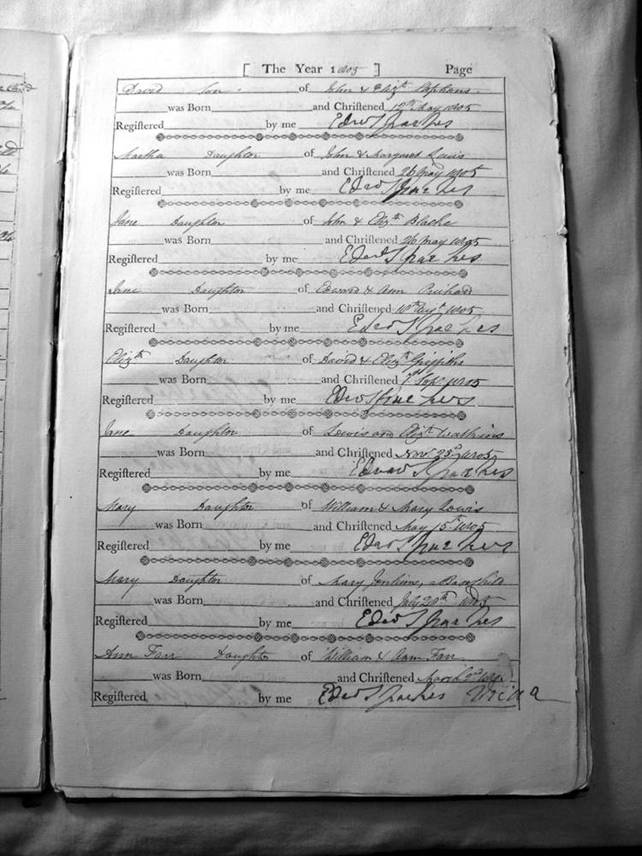 [ The Year 1805 ] Page
David Son of John & Elizth
was Born and Chriſtened May 1805
Regiſtered by me Edwd Sparkes
Martha Daughter of John & Margaret Lewis
was Born and Chriſtened 26 May 1805
Regiſtered by me Edwd Sparkes
Jane Daughter of John & Elizth
was Born and Chriſtened 26 May 1805
Regiſtered by me Edwd Sparkes
Jane Daughter of Edward & Ann Prichard
was Born and Chriſtened 1805
Regiſtered by me Edwd Sparkes
Elizth Daughter of David & Elizth Griffiths
was Born and Chriſtened Sepr 1805
Regiſtered by me Edwd Sparkes
Jane Daughter of Lewis and Elizth Watkins
was Born and Chriſtened Novr 1805
Regiſtered by me Edwd Sparkes
Mary Daughter of William & Mary Lewis
was Born and Chriſtened May 15th 1805
Regiſtered by me Edwd Sparkes
Mary Daughter of Mary Jenkins,
was Born and Chriſtened July 1805
Regiſtered by me Edwd Sparkes
Ann Farr Daughter of William & Farr
was Born and Chriſtened March
Regiſtered by me Edwd Sparkes